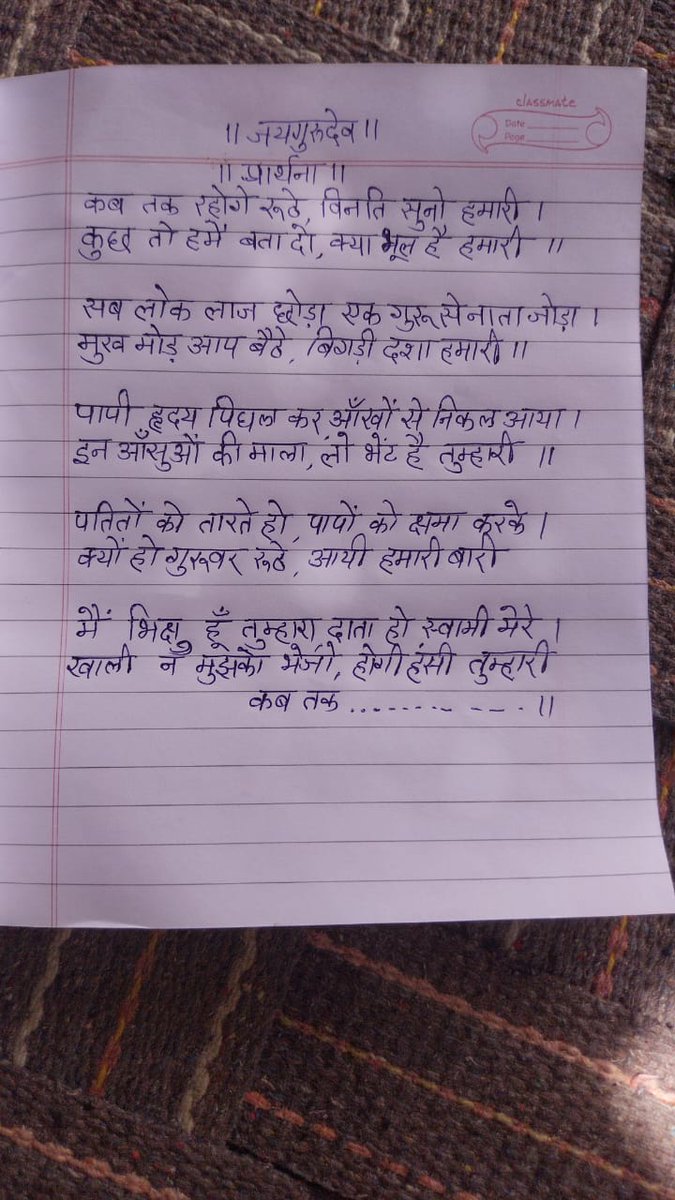 classmate
Date
Page
।। जयगुरुदेव ।।
।। प्रार्थना ।।
कब तक रहोगे रूठे, विनति सुनो हमारी ।
कुछ तो हमें बता दो, क्या भूल है हमारी ।।
सब लोक लाज छोड़ा एक गुरू से नाता जोड़ा ।
मुख मोड़ आप बैठे, बिगड़ी दशा हमारी ।।
पापी हृदय पिघल कर आँखों से निकल आया ।
इन आँसुओं की माला, लो भेंट है तुम्हारी ।।
पतितों को तारते हो, पापों को क्षमा करके ।
क्यों हो गुरूवर रूठे, आयी हमारी बारी
मैं भिक्षु हूँ तुम्हारा दाता हो स्वामी मेरे ।
खाली न मुझको भेजो, होगी हंसी तुम्हारी
कब तक ............ ।।